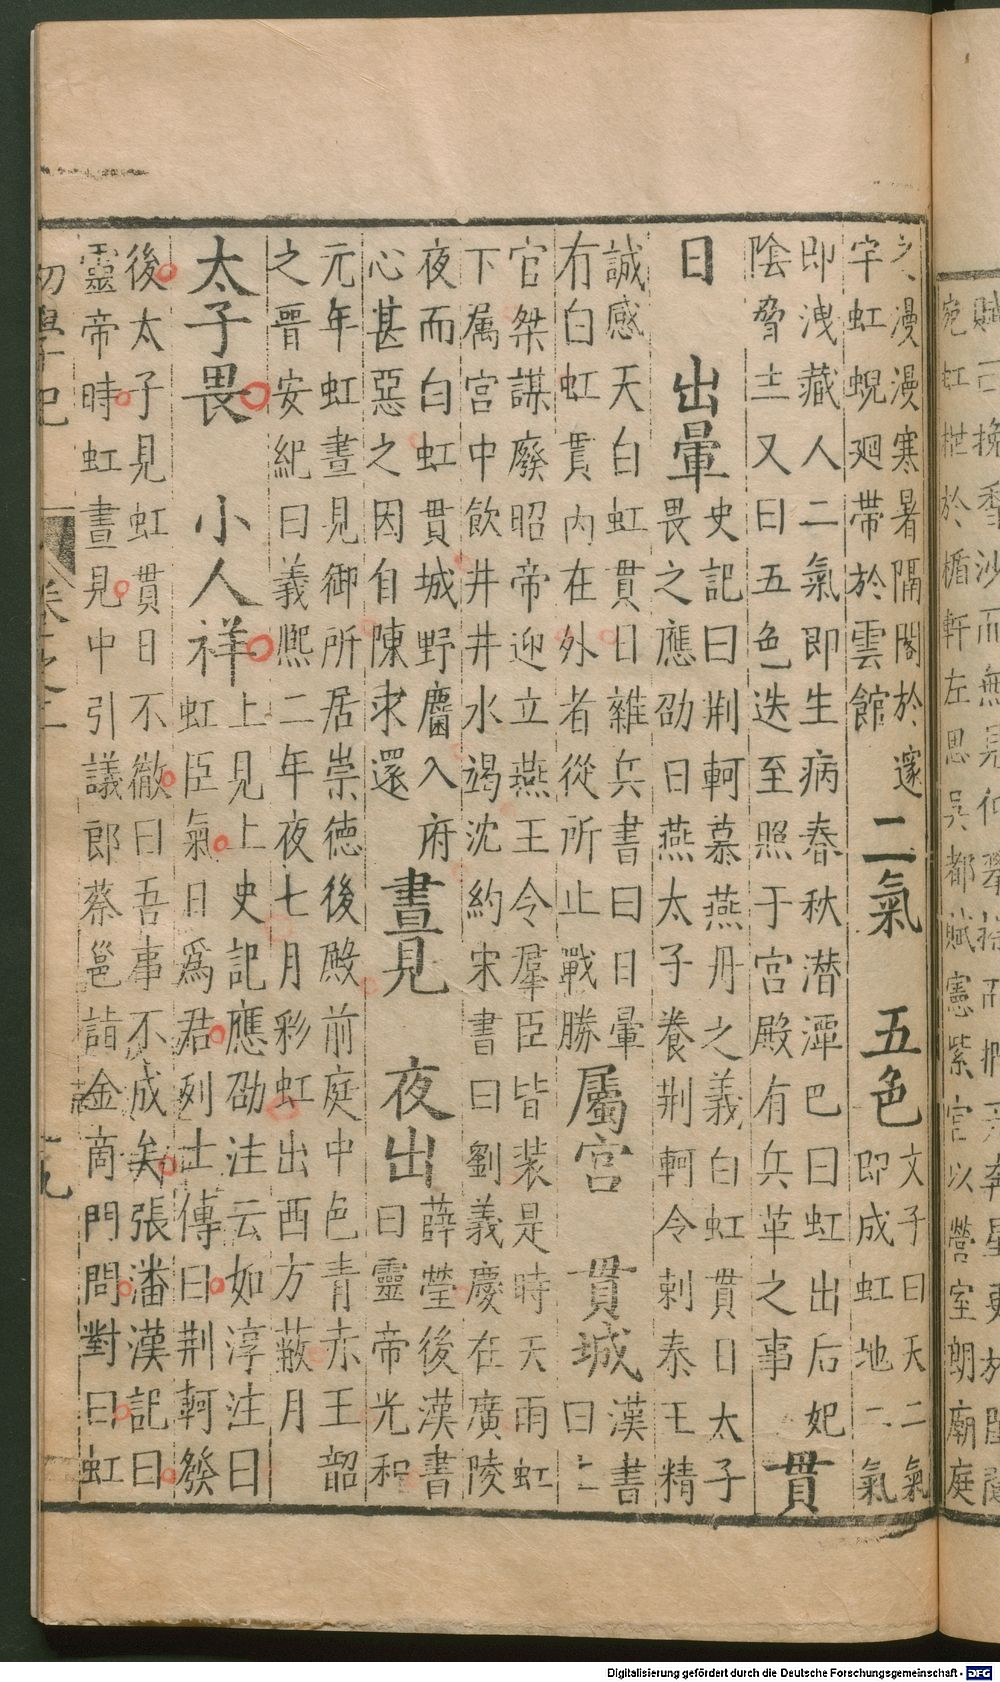 宛虹拖於楯軒左思吳都賦憲紫宮以營室朗廟庭
之漫漫寒暑隔閣於邃
宇虹蜺廻帶於雲館
二氣 五色
文子曰天二氣
即成虹地二氣
即洩藏人二氣即生病春秋潜潭巴曰虹出后妃
陰脅主又曰五色迭至照于宮殿有兵革之事
貫
日 出暈
史記曰荆軻慕燕丹之義白虹貫日太子
畏之應劭曰燕太子養荆軻令刺秦王精
誠感天白虹貫日雜兵書曰日暈
有白虹貫内在外者從所止戰勝
屬宮 貫城
漢書
曰上
官桀謀廢昭帝迎立燕王令羣臣皆装是時天雨虹
下属宮中飲井井水竭沈約宋書曰劉義慶在廣陵
夜而白虹貫城野麕入府
心甚惡之因自陳求還
晝見 夜出
薛瑩後漢書
曰靈帝光和
元年虹晝見御所居崇德後殿前庭中色青赤王韶
之晉安紀曰義熈二年夜七月彩虹出西方蔽月
太子畏 小人祥
上見上史記應劭注云如淳注曰
虹臣氣日爲君列士傳曰荆軻發
後太子見虹貫日不徹曰吾事不成矣張潘漢記曰
靈帝時虹晝見中引議郎蔡邕詣金商門問對曰虹
Digitalisierung gefördert durch die Deutsche Forschungsgemeinschaft - DFG